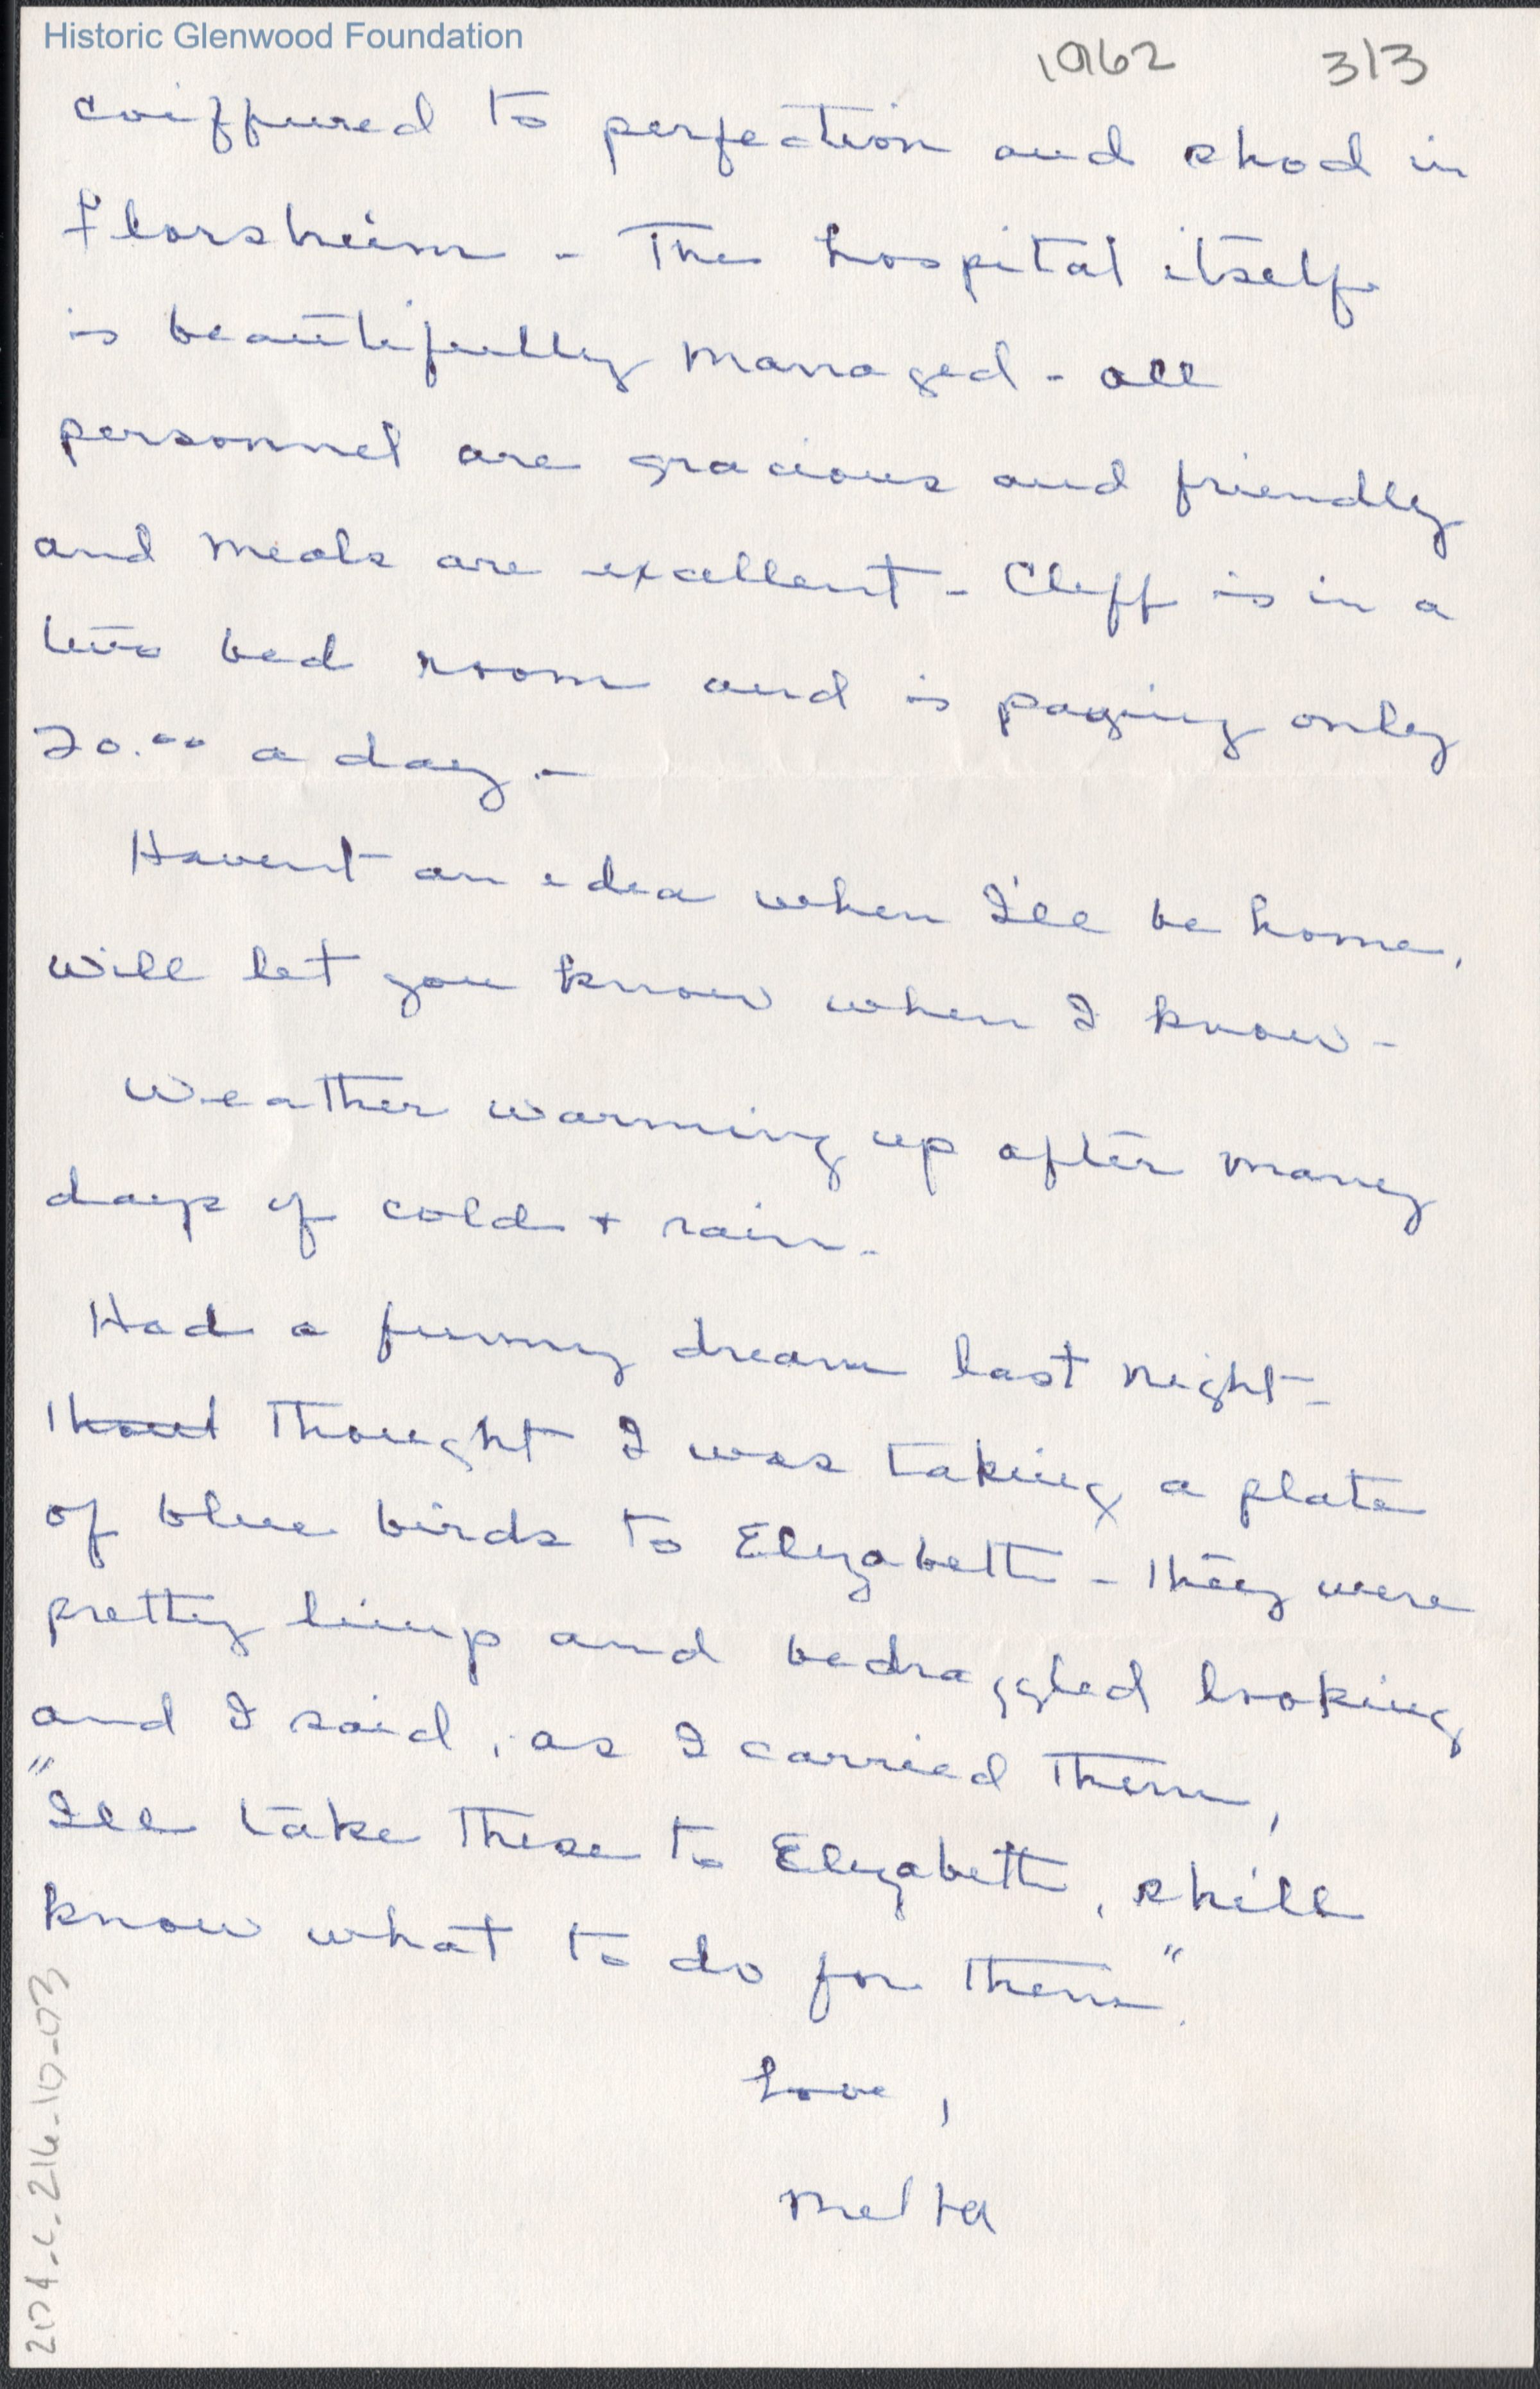 Historic Glenwood Foundation
1962 3/3
coiffured to perfection and shod in
Florsheim - The hospital itself
is beautifully managed - all
personnel are gracious and friendly
and meals are excellent - Cliff is in a
two bed room and is paying only
20.00 a day.-
Havent an idea when I'll be home,
will let you know when I know -
Weather warming up after many
days of cold + rain -
Had a funny dream last night -
Thout Thought I was taking a plate
of blue birds to Elizabeth - They were
pretty limp and bedraggled looking
and I said, as I carried them,
"Ill take these to Elizabeth, she'll
know what to do for them".
Love,
Melta